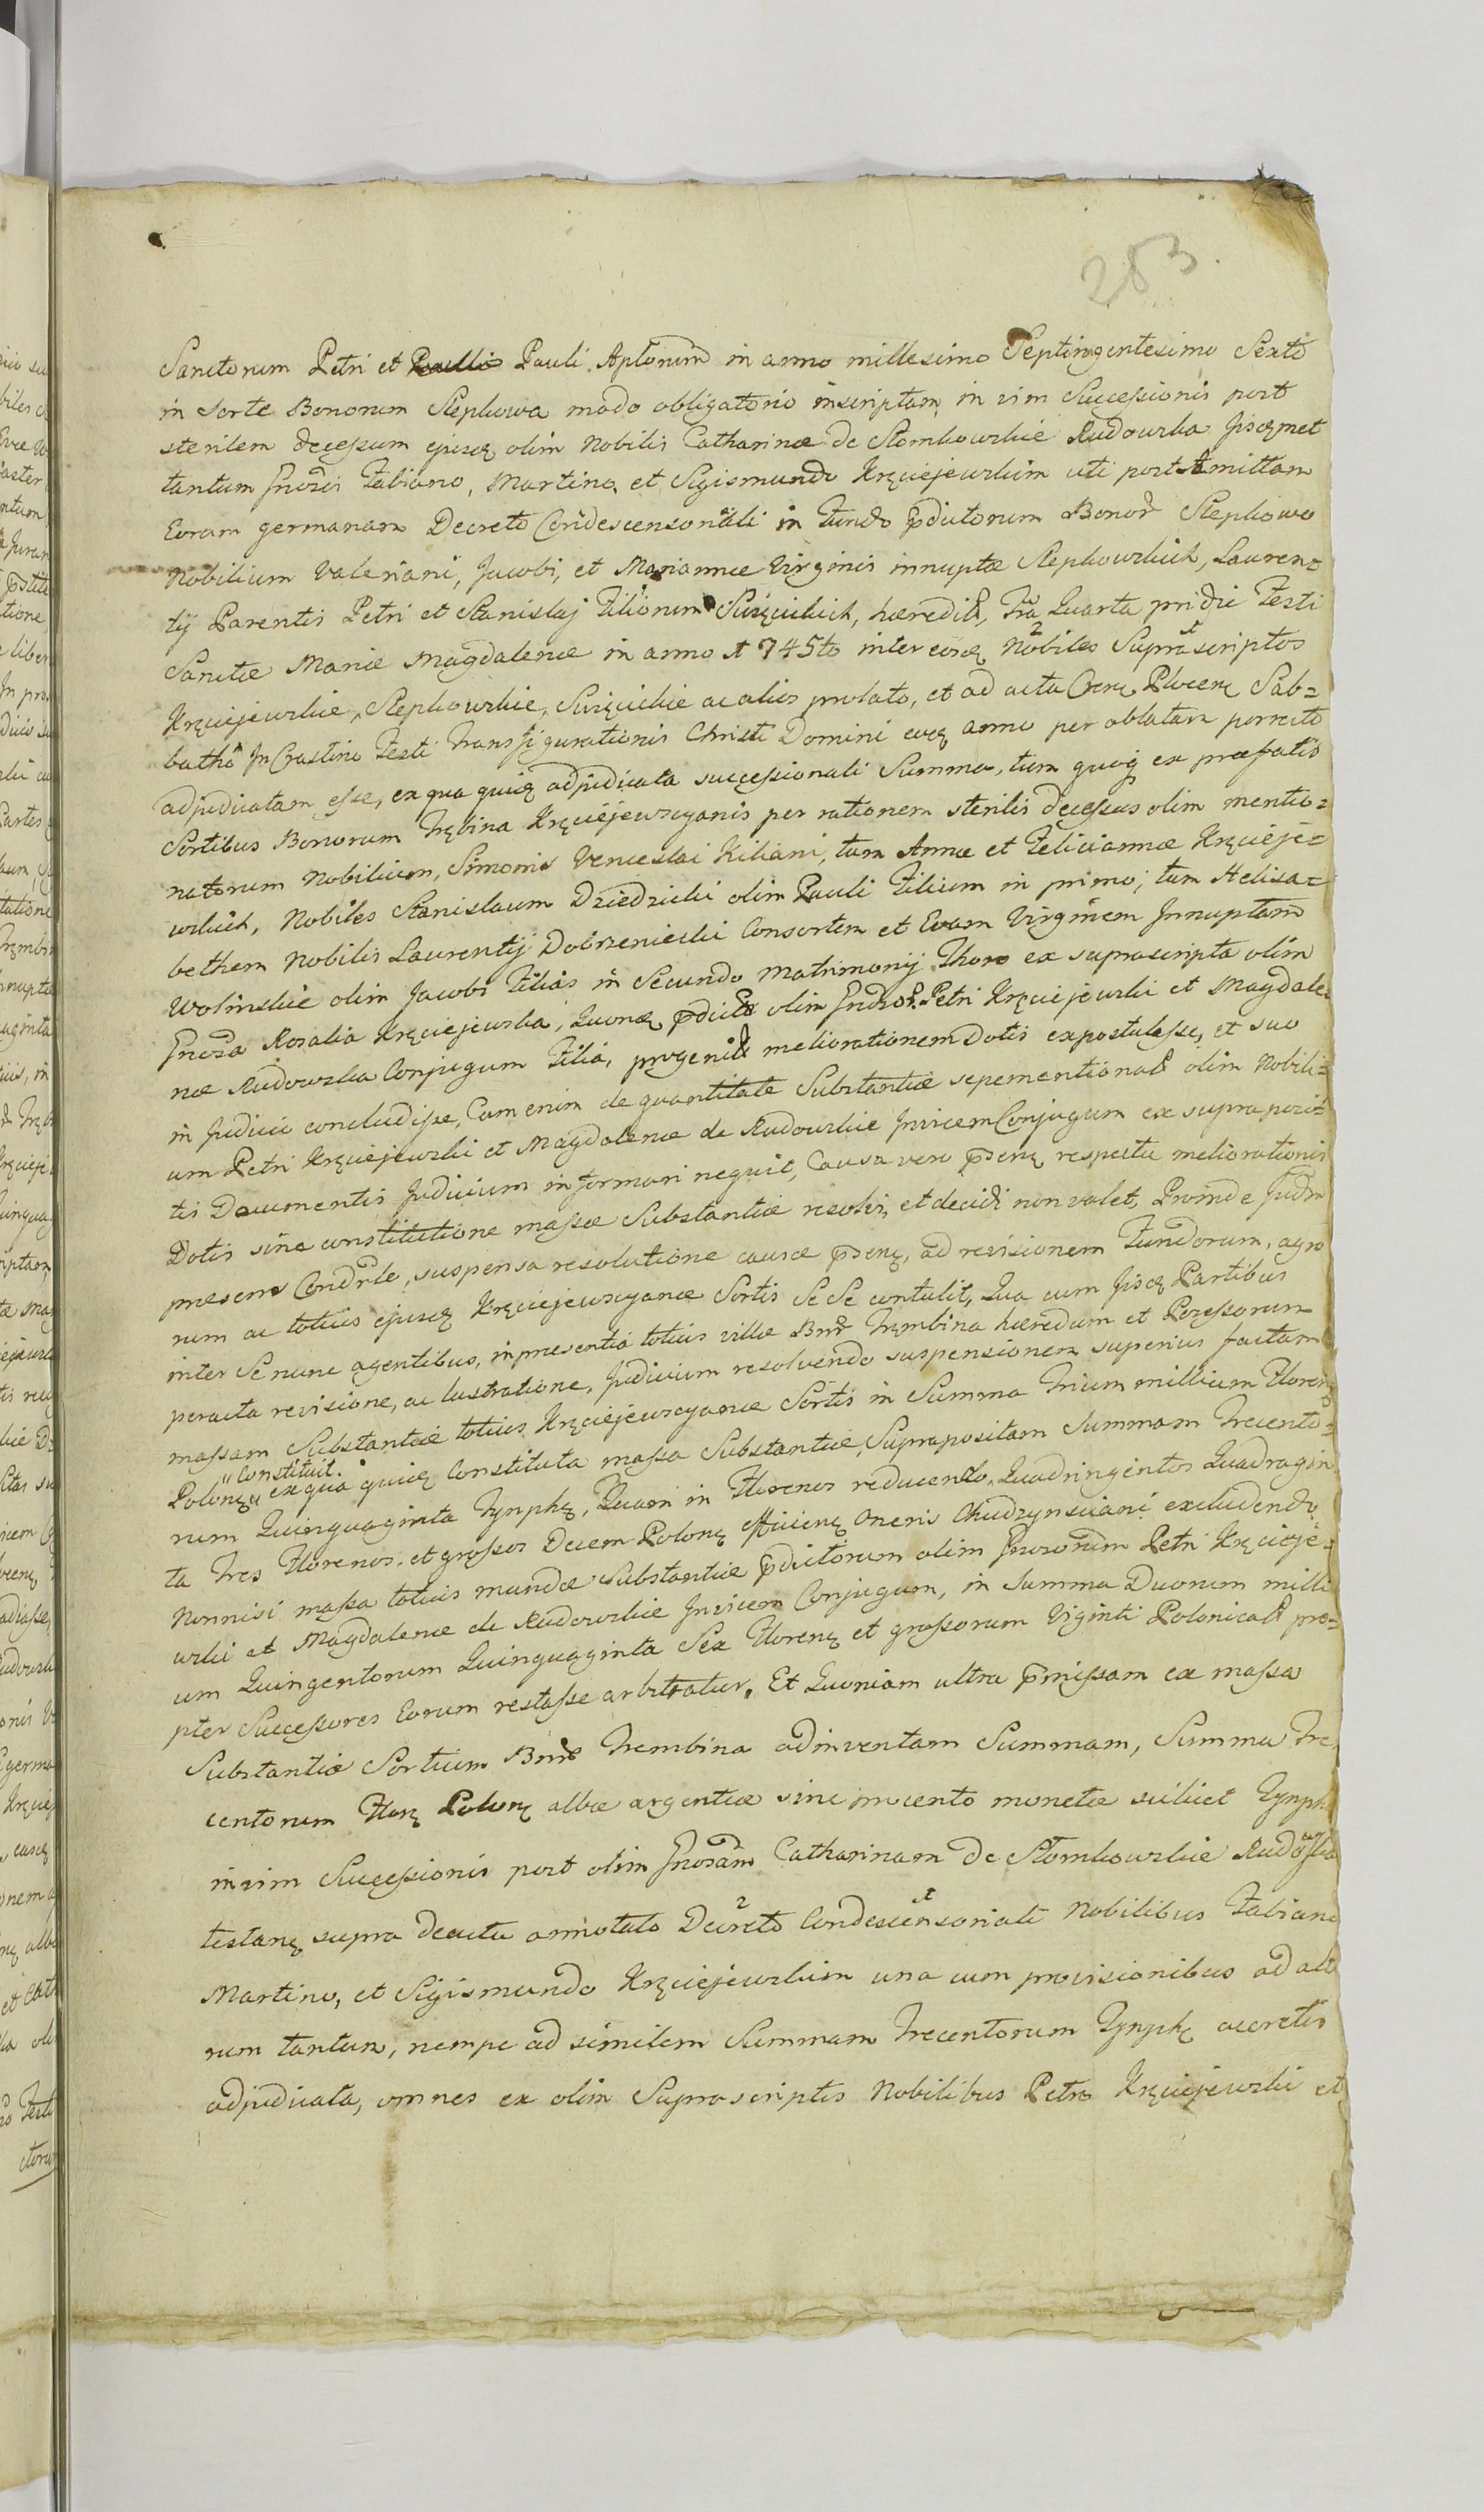 283.
Sanctorum Petri et Pauli Aplorum in anno millesimo Septingentesimo Sexto
in Sorte Bonorum Slepkowa modo obligatorio inscriptam, in vim Successionis post
sterilem decessum ejusq olim Nobilis Catharinæ de Slomkowskie Rudowska Iisqmet
tantum Gnosis Fabiano, Martino, et Sigismundo Kręciejewskim uti post Amittam
Eoram germanam Decreto Condescensoriali in Fundo pdictorum Bonor Slepkowo
Nobilium Valeriani, Jacobi, et Mariannæ Virginis innuptæ Slepkowskich, Lauren=
tij Parentis Petri et Stanislaj Filiorum Swięcickich, hæredit, Fra Quarta pridie Festi
Sanctæ Mariæ Magdalenæ in anno 1745to inter eosq Nobiles Suprascriptos
Kręciejewskie, Slepkowskie, Swięcickie ac alios prolato, et ad acta Crens Plocens Sab=
batho In Crastino Festi Transfigurationis Christi Domini eoq anno per oblatam porrecto
adjudicatam esse, ex qua quidq adjudicata successionali Summa, tum quoq ex præfatis
Sortibus Bonorum Trębina Kręciejewscyanis per rationem sterilis decessus olim mentio=
natorum Nobilium, Simonis Venceslai Kiliani, tum Annæ et Feliciannæ Kręcieje=
wskich, Nobiles Stanislaum Dziedzicki olim Pauli Filium in primo, tum Helisa=
betham Nobilis Laurentij Dobrzenieski Consortem et Evam Virginem Innuptam
Wolinskie olim Jacobi Filias in Secundo Matrimonij Thoro ex suprascripta olim
Gnosa Rosalia Kręciejewska, Quonq pdict olim Gnosor Petri Kręciejewski et Magdale=
næ Rudowska Conjugum Filia, progenit meliorationem Dotis expostulasse, et suo
in Judicii concludisse, Cum enim de quantitate Substantiæ sepementionat olim Nobili=
um Petri Kręciejewski et Magdalenæ de Rudowskie Invicem Conjugum ex supraposi=
tis Documentis Judicium informari nequit, Causa vero psens respectu meliorationis
Dotis sine constitutione massæ Substantiæ resolvi, et decidi non valet, Proinde Judm
præsens Condrle, suspensa resolutione causæ psens, ad revisionem Fundorum, agro
rum ac totius ejusq Kręciejewscyanæ Sortis Se Se contulit, Qua cum Iisq Partibus
inter Se nunc agentibus, in presentia totius villæ Bnor Trębina hæredum et Possessorum
peracta revisione, ac lustratione, Judicium resolvendo suspensionem superius factam
massam Substantiæ totius Kręciejewscyanæ Sortis in Summa Trium millium Floren
Constituit.
Polonq ex qua quidq Constituta massa Substantiæ, Suprapositam Summam Trecento=
rum Quinquaginta Tynphq, Quam in Florenos reducendo, Quadringentos Quadragin
ta Tres Florenos, et grossos Decem Polonq efficienq oneris Chudzynsciani excludendo
Nonnisi massa totius mundæ Substantiæ pdictorum olim Gnosorum Petri Kręcieje=
wski et Magdalenæ de Rudowskie Invicem Conjugum, in Summa Duorum milli
um Quingentorum Quinquaginta Sex Florenq et grossorum Viginti Polonical pro=
pter Successores Eorum restasse arbitratur. Et Quoniam ultra pmissam ex massa
Substantiæ Sortium Bnor Trembina adinventam Summam, Summa Tre
centorum Florq Polonq albæ argenteæ sine procento monetæ scilicet Tynph
in vim Successionis post olim Gnosam Catharinam de Slomkowskie Rudowska
testanq supra deactu annotato Decreto Condescensoriali Nobilibus Fabiano
Martino, et Sigismundo Kręciejewskim una cum provisionibus ad alte
rum tantum, nempe ad similem Summam Trecentorum Tynphq accretis
adjudicata, omnes ex olim Suprascriptis Nobilibus Petro Kręciejewski et